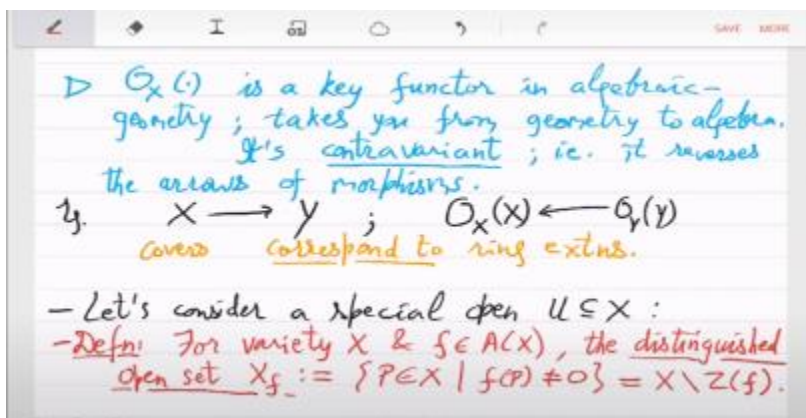 SAVE MORE
▷ O_X(·) is a key functor in algebraic-
geometry ; takes you from geometry to algebra.
It's contravariant ; ie. it reverses
the arrows of morphisms.
X ⟶ Y ; O_X(X) ⟵ O_Y(Y)
covers correspond to ring extns.
- Let's consider a special open U ⊆ X :
- Defn: For variety X & f ∈ A(X), the distinguished
open set X_f := {P∈X | f(P) ≠ 0} = X \ Z(f).